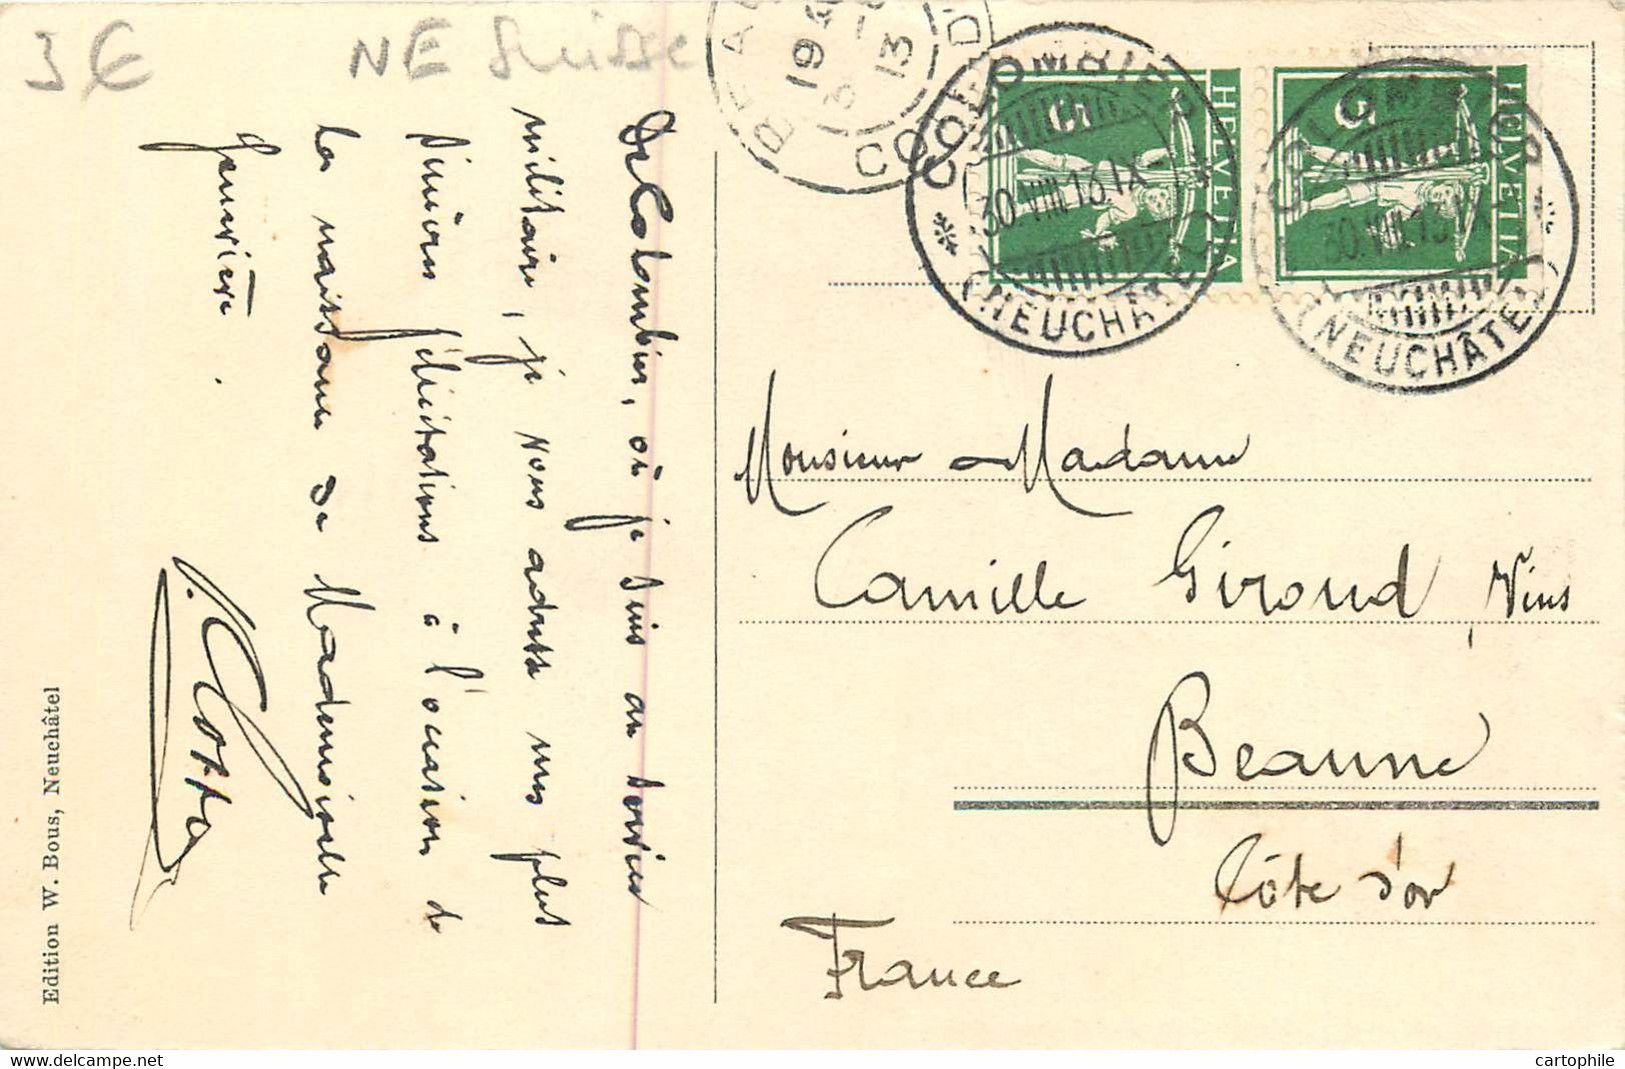 3€ NE Suisse
De Colombier, où je suis au service
militaire, je vous adresse mes plus
sincères félicitations à l'occasion de
la naissance de Mademoiselle
Geneviève.
Edition W. Bous, Neuchâtel
BEAU
19
3 - 13
COTE D'O
COLOMBIER
30.VIII.13.IX-
(NEUCHÂTEL)
HELVETIA
5
COLOMBIER
30.VIII.13.IX-
(NEUCHÂTEL)
HELVETIA
5
Monsieur Madame
Camille Giroud, Vins
Beaune
Côte d'or
France
cartophile